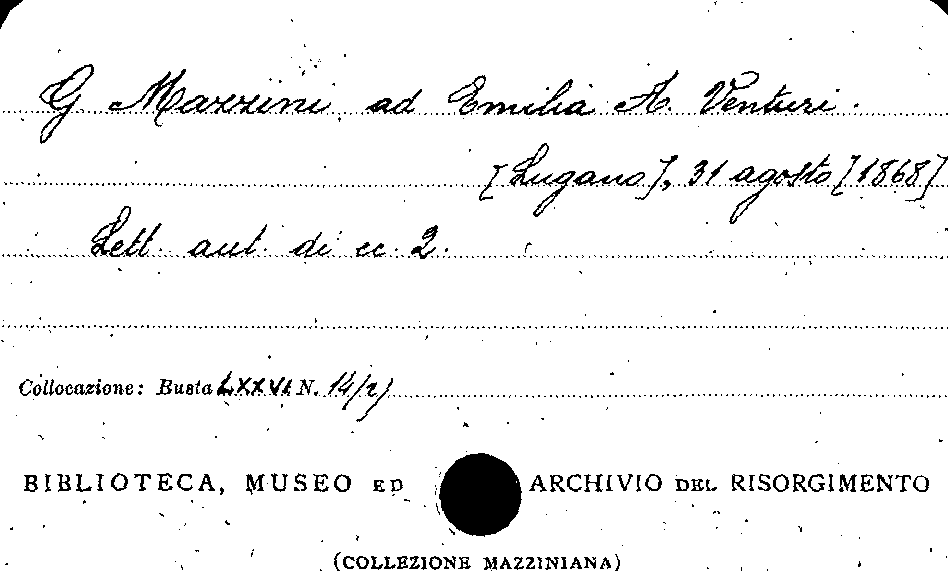 G Mazzini ad Emilia A. Venturi.
[Lugano], 31 agosto [1868]
Lett. aut. di cc. 2.
Collocazione: Busta LXXVI N. 14/2)
BIBLIOTECA, MUSEO ED ARCHIVIO DEL RISORGIMENTO
(COLLEZIONE MAZZINIANA)